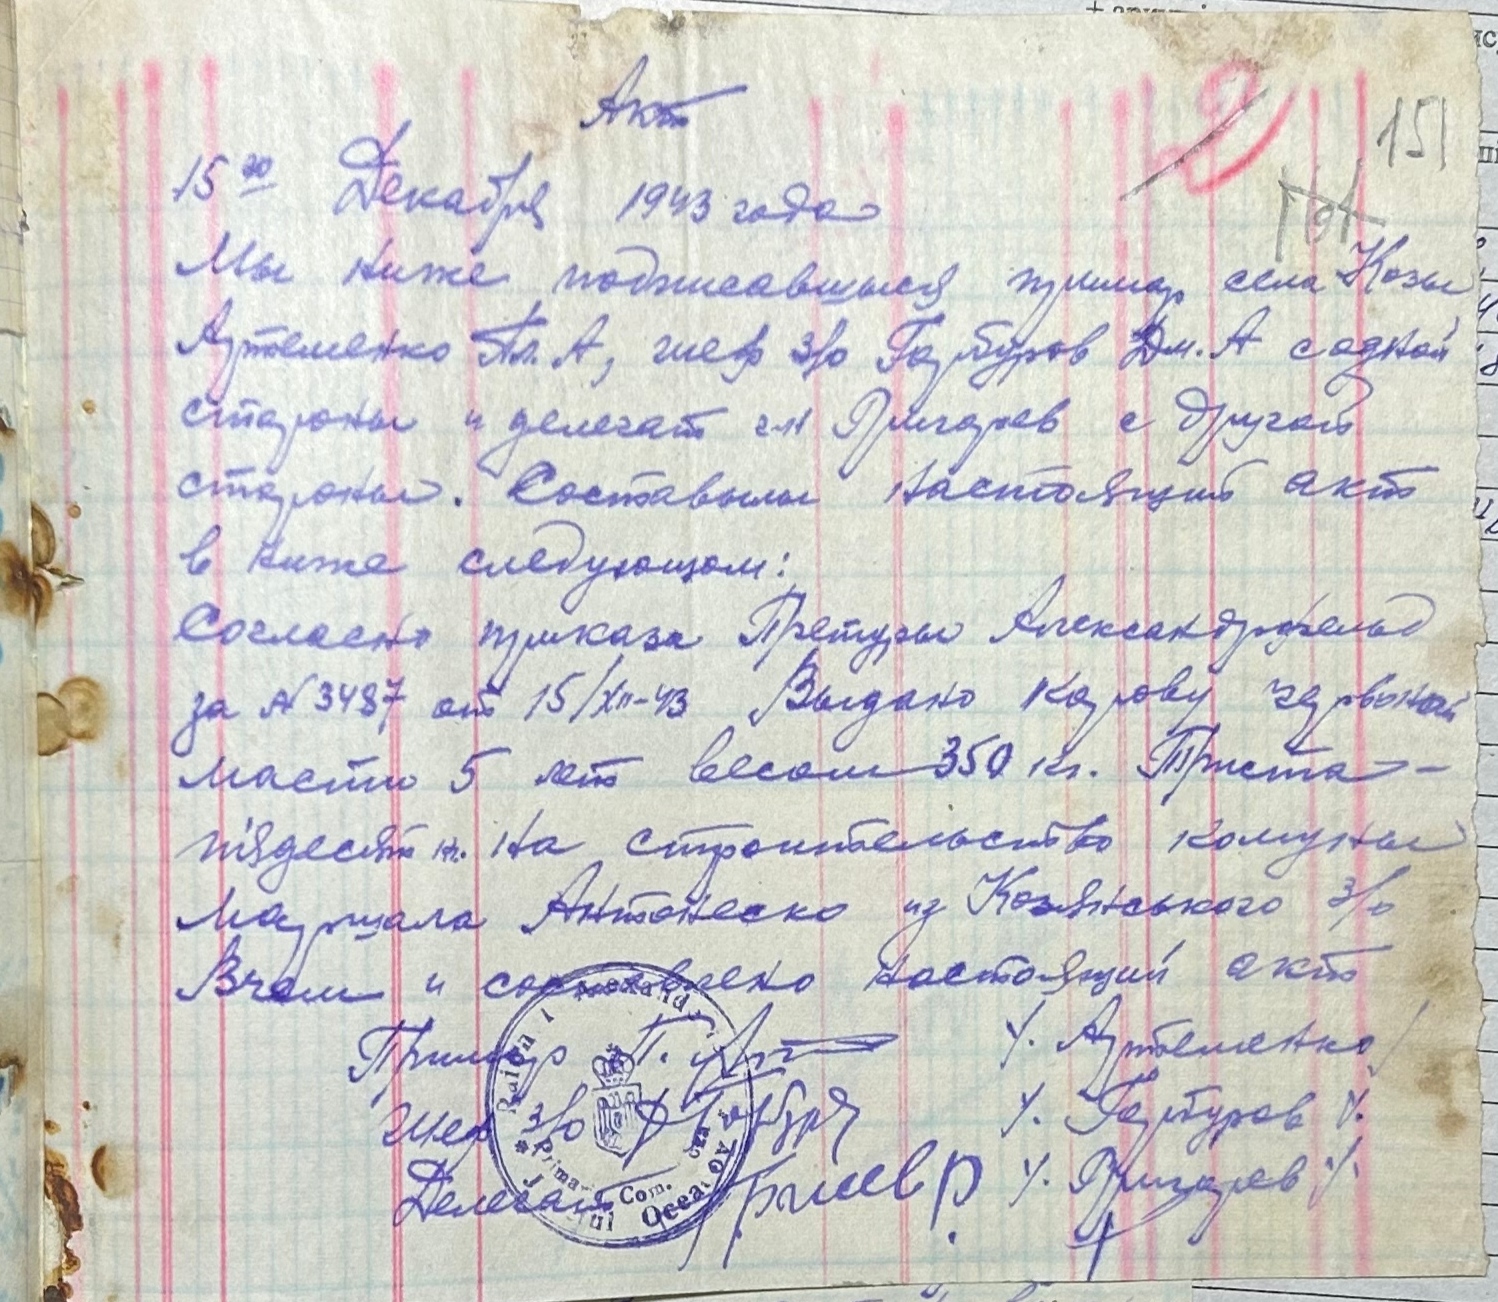 151
Акт
15го Декабря 1943 года
Мы ниже подписавшыеся примар села Козы
Артеменко Пл. А, шеф з/о Гарбуров Дм. А с одной
стороны и делегат г-н Григорев с другой
стороны. Составылы настоящий акт
в ниже следующом:
Согласно приказа Претуры Александрфельд
за № 3487 от 15/XII-43 Выдано корову червоной
масти 5 лет весом 350 кг. Триста-
пядесят кг. На строительство комуны
Маршала Антонеско из Козянського з/о
Вчем и составлено настоящий акт
Примар П. Арт /. Артеменко/
Шеф з/о /. Гарбуров /.
Делегат /. Григорев /.
Primar Com.
Ocea